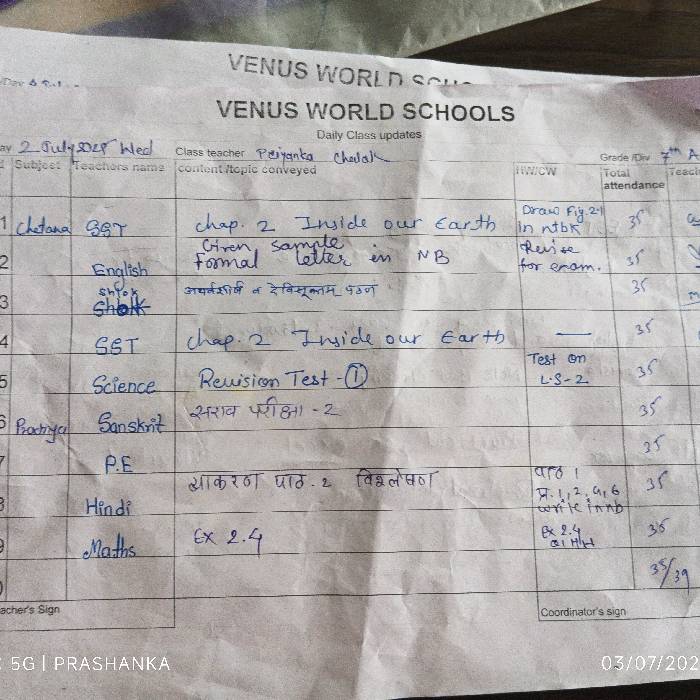 VENUS WORLD
VENUS WORLD SCHOOLS
Daily Class updates
2 July Wed Class teacher Priyanka Grade /Div 7th A
Subject Teachers name content /topic conveyed HW/CW Total attendance
1 Chetana SST Chap. 2 Inside our Earth Draw Fig. 2.1 in ntbk 35
2 English Given sample Formal letter in NB Revise for exam. 35
3 Shlok 35
4 SST Chap. 2 Inside our Earth — 35
5 Science Revision Test - ① Test on L.S-2 35
6 Sanskrit सराव परीक्षा - 2 35
7 P.E 35
8 Hindi व्याकरण पाठ. 2 विश्लेषण पाठ 1 write in nb 35
9 Maths Ex 2.4 Ex 2.4 35
35/39
acher's Sign Coordinator's sign
5G | PRASHANKA 03/07/202